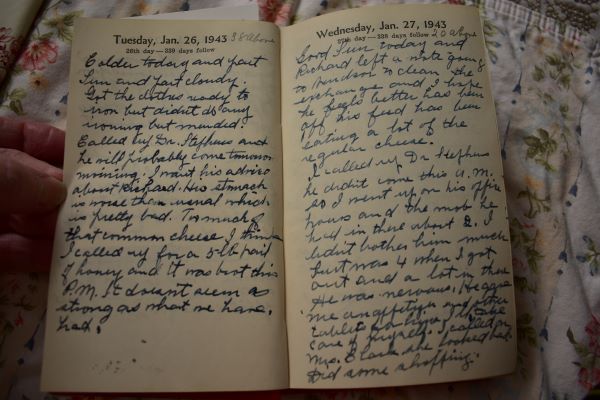 Tuesday, Jan. 26, 1943 38 above
26th day — 339 days follow
Colder today and part
Sun and part cloudy.
Got the clothes ready to
iron but didn't do any
ironing but mended.
Called up Dr. Stephens and
he will probably come tomorrow
morning. I want his advice
about Richard. His stomach
is worse than usual which
is pretty bad. Too much of
that common cheese I think
I called up for a 5 lb pail
of honey and it was brot this
P.M. It doesn't seem as
strong as what we have
had.
Wednesday, Jan. 27, 1943 20 above
27th day — 338 days follow
Good Sun today and
Richard left a note going
to Hudson to clean the
exchange and I hope
he feels better has been
off his feed has been
eating a lot of the
regular cheese.
I called up Dr Stephens
he didn't come this A.M.
so I went up on his office
hours and the mob he
had in there about 2. I
didn't bother him much
Just was 4 when I got
out and a lot in there
He was nervous. He gave
me an appetizer and other
tablets
care of myself. I called on
Mrs. she looked bad.
Did some shopping.